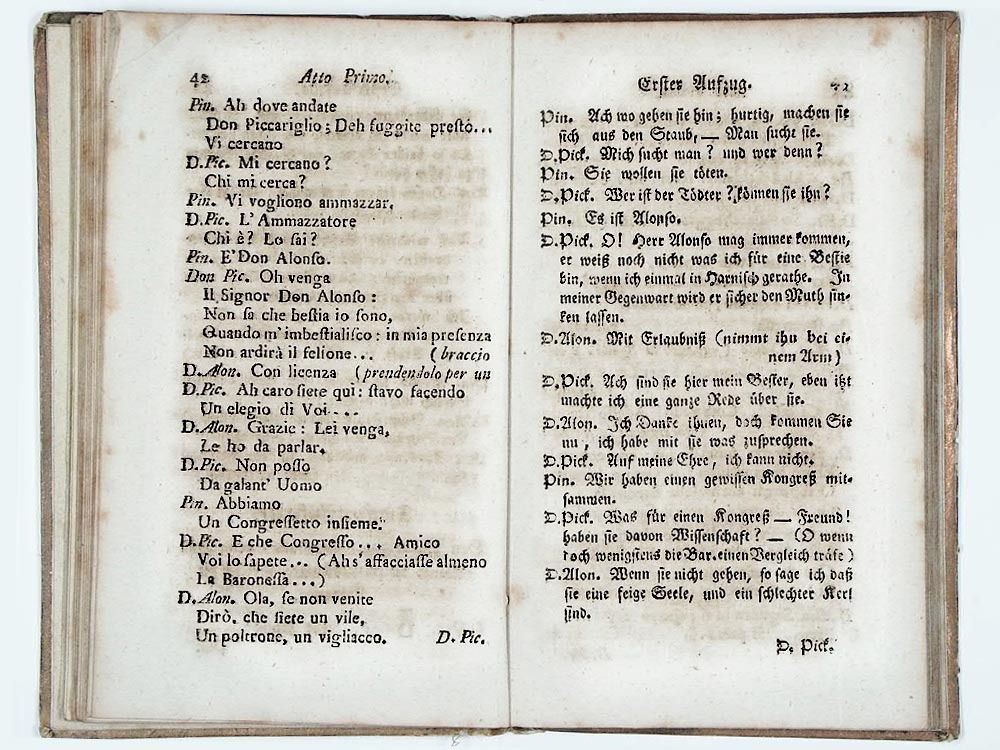 42 Atto Primo.
Pin. Ah dove andate
Don Piccariglio; Deh fuggite presto...
Vi cercano
D.Pic. Mi cercano?
Chi mi cerca?
Pin. Vi vogliono ammazzar.
D.Pic. L'Ammazzatore
Chi è? Lo sai?
Pin. E'Don Alonso.
Don Pic. Oh venga
Il Signor Don Alonso:
Non sa che bestia io sono,
Quando m'imbestialisco: in mia presenza
Non ardirà il fellone... (braccio
D.Alon. Con licenza (prendendolo per un
D.Pic. Ah caro siete quì: stavo facendo
Un elegio di Voi....
D.Alon. Grazie: Lei venga,
Le ho da parlar.
D.Pic. Non posso
Da galant' Uomo
Pin. Abbiamo
Un Congressetto insieme.
D.Pic. E che Congresso... Amico
Voi lo sapete... (Ah s'affacciasse almeno
La Baronessa...)
D.Alon. Ola, se non venite
Dirò, che siete un vile,
Un poltrone, un vigliacco. D. Pic.
Erster Aufzug.
Pin. Ach wo gehen sie hin; hurtig, machen sie
sich aus den Staub, — Man sucht sie.
D.Pick. Mich sucht man? und wer denn?
Pin. Sie wollen sie töten.
D.Pick. Wer ist der Tödter? können sie ihn?
Pin. Es ist Alonso.
D.Pick. O! Herr Alonso mag immer kommen,
er weiß noch nicht was ich für eine Bestie
bin, wenn ich einmal in Harnisch gerathe. In
meiner Gegenwart wird er sicher den Muth sin-
ken lassen.
D.Alon. Mit Erlaubniß (nimmt ihn bei ei-
nem Arm)
D.Pick. Ach sind sie hier mein Bester, eben itzt
machte ich eine ganze Rede über sie.
D.Alon. Ich Danke ihnen, doch kommen Sie
nu, ich habe mit sie was zusprechen.
D.Pick. Auf meine Ehre, ich kann nicht.
Pin. Wir haben einen gewissen Kongreß mit-
sammen.
D.Pick. Was für einen Kongreß — Freund!
haben sie davon Wissenschaft? — (O wenn
doch wenigstens die Bar. einen Vergleich träfe)
D.Alon. Wenn sie nicht gehen, so sage ich daß
sie eine feige Seele, und ein schlechter Kerl
sind.
D. Pick.